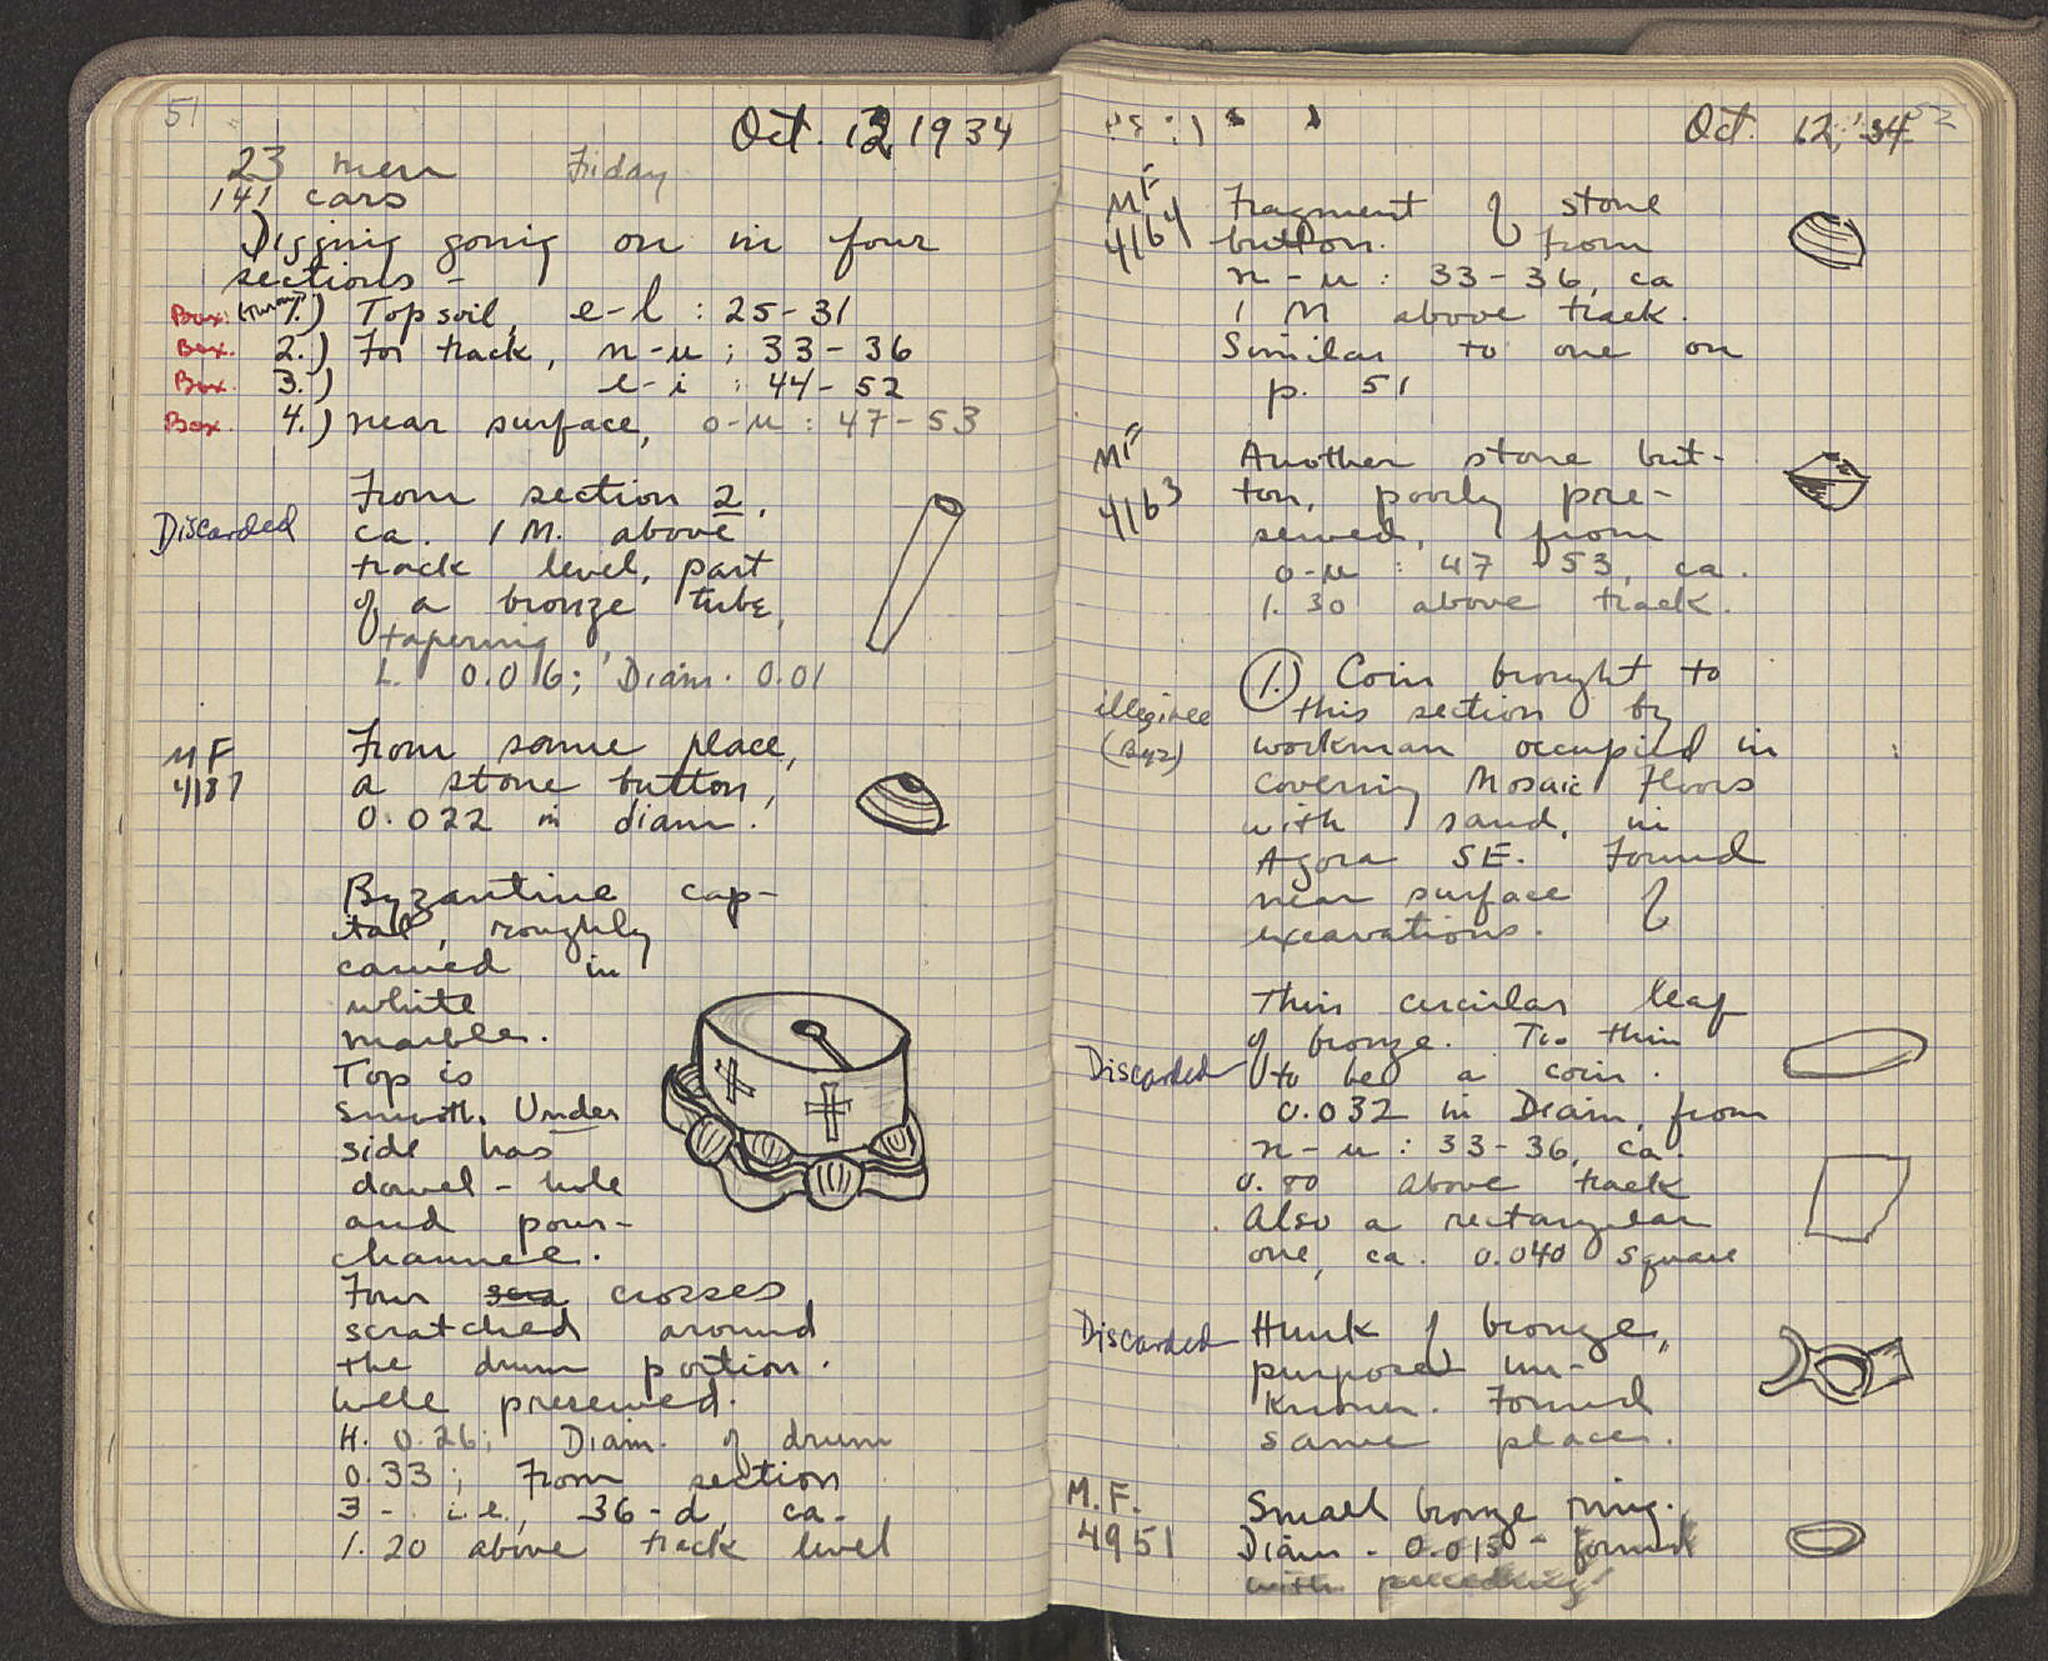 51
Oct. 12 1934
23 men Friday
141 cars
Digging going on in four
sections -
Box. 1.) Top soil, e-l : 25-31
Box. 2.) For track, n-u ; 33-36
Box. 3.) e-i : 44-52
Box. 4.) near surface, o-u : 47-53
From section 2,
Discarded ca. 1 M. above
track level, part
of a bronze tube,
tapering,
L. 0.016; Diam. 0.01
MF 4187
From same place,
a stone button,
0.022 in diam.
Byzantine cap-
ital, roughly
carved in
white
marble.
Top is
smooth. Under
side has
dowel-hole
and pour-
channel.
Four crosses
scratched around
the drum portion.
Well preserved.
H. 0.26; Diam. of drum
0.33; From section
3 - i.e., 36-d, ca.
1.20 above track level
52
Oct. 12, 34
MF 4164
Fragment of stone
button. From
n-u : 33-36, ca
1 M above track.
Similar to one on
p. 51
MF 4163
Another stone but-
ton, poorly pre-
served, from
o-u : 47-53, ca.
1.30 above track.
(1.) Coin brought to
illegible this section by
(Byz) workman occupied in
covering Mosaic Floors
with sand, in
Agora SE. Found
near surface of
excavations.
Thin circular leaf
of bronze. Too thin
Discarded to be a coin.
0.032 in Diam, from
n-u : 33-36, ca.
0.80 above track
Also a rectangular
one, ca. 0.040 square
Discarded Hunk of bronze,
purpose un-
known. Found
same place.
M.F. 4951
Small bronze ring.
Diam. 0.015 - found
with preceding